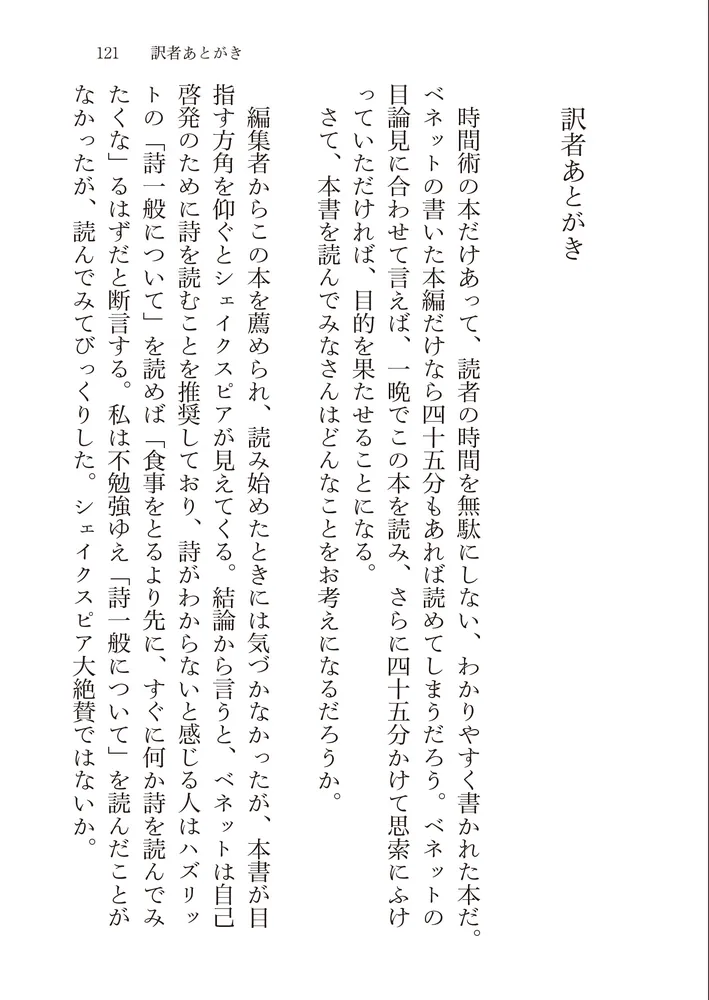 121 訳者あとがき
訳者あとがき
時間術の本だけあって、読者の時間を無駄にしない、わかりやすく書かれた本だ。
ベネットの書いた本編だけなら四十五分もあれば読めてしまうだろう。ベネットの
目論見に合わせて言えば、一晩でこの本を読み、さらに四十五分かけて思索にふけ
っていただければ、目的を果たせることになる。
さて、本書を読んでみなさんはどんなことをお考えになるだろうか。
編集者からこの本を薦められ、読み始めたときには気づかなかったが、本書が目
指す方角を仰ぐとシェイクスピアが見えてくる。結論から言うと、ベネットは自己
啓発のために詩を読むことを推奨しており、詩がわからないと感じる人はハズリッ
トの「詩一般について」を読めば「食事をとるより先に、すぐに何か詩を読んでみ
たくな」るはずだと断言する。私は不勉強ゆえ「詩一般について」を読んだことが
なかったが、読んでみてびっくりした。シェイクスピア大絶賛ではないか。